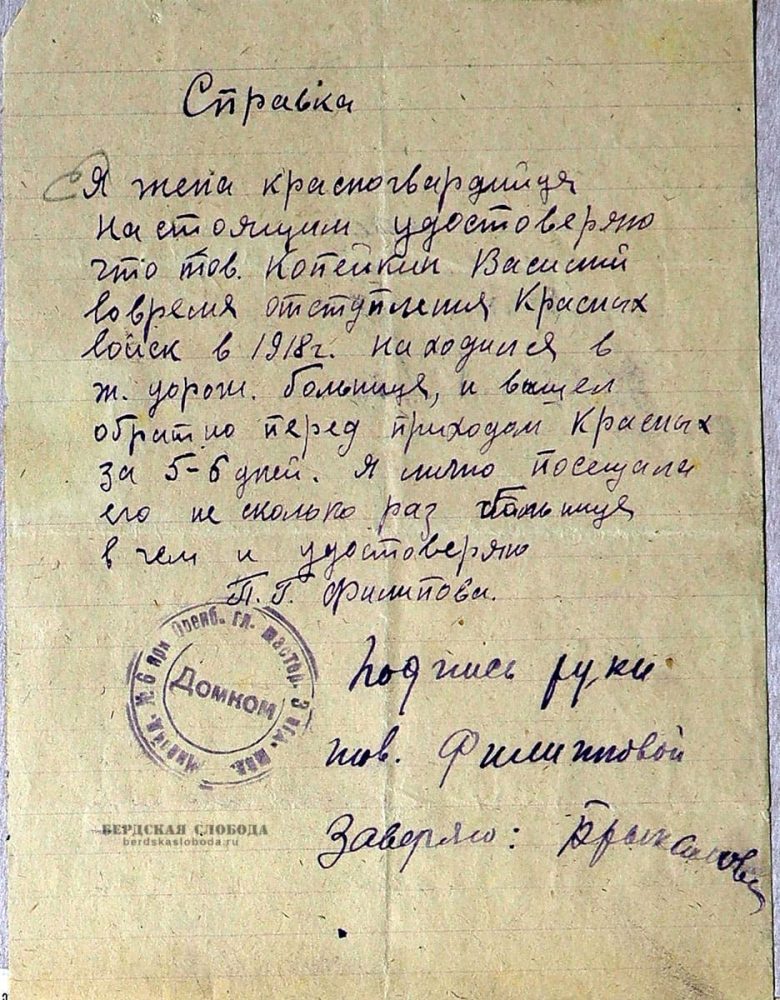 Справка
Я жена красногвардийця
настоящим удостоверяю
что тов. Копейкин Василий
вовремя отступления Красных
войск в 1918г. находился в
ж. дорож. больнице, и вышел
обратно перед приходом Красных
за 5-6 дней. Я лично посещала
его не сколько раз больнице
в чем и удостоверяю
П. Г. Филипова.
Подпись руки
тов. Филипповой
Заверяю:
№ 6 при Оренб. гл. мастер.
Домком
БЕРДСКАЯ СЛОБОДА
berdskasloboda.ru